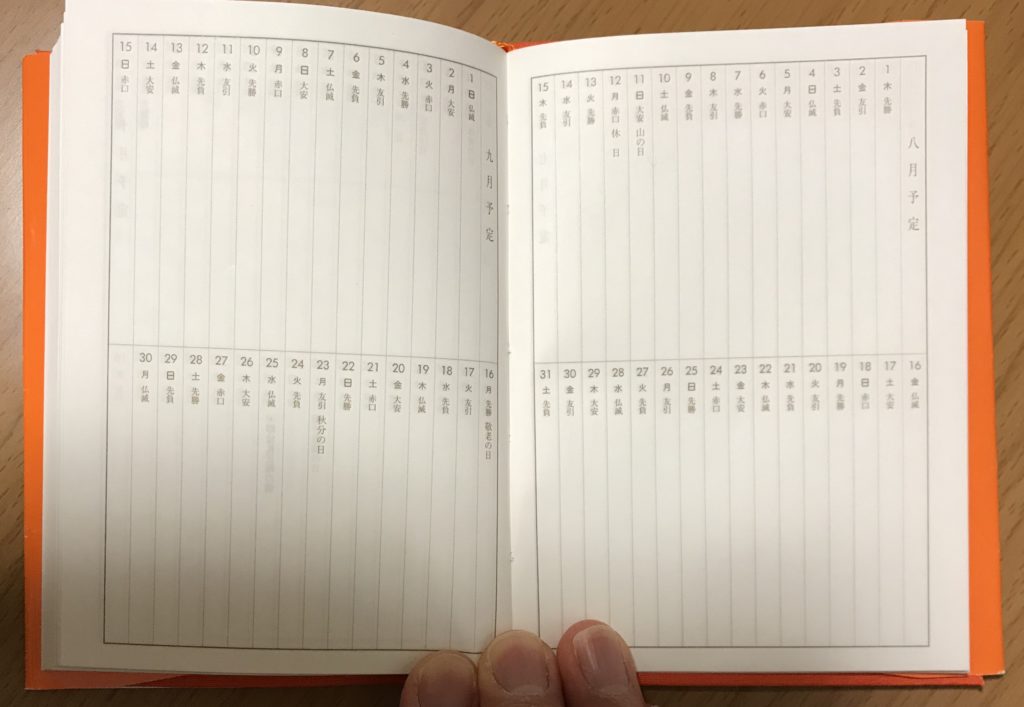 八月予定
1 木 先勝
2 金 友引
3 土 先負
4 日 仏滅
5 月 大安
6 火 赤口
7 水 先勝
8 木 友引
9 金 先負
10 土 仏滅
11 日 大安 山の日
12 月 赤口 休日
13 火 先勝
14 水 友引
15 木 先負
16 金 仏滅
17 土 大安
18 日 赤口
19 月 先勝
20 火 友引
21 水 先負
22 木 仏滅
23 金 大安
24 土 赤口
25 日 先勝
26 月 友引
27 火 先負
28 水 仏滅
29 木 大安
30 金 友引
31 土 先負
九月予定
1 日 仏滅
2 月 大安
3 火 赤口
4 水 先勝
5 木 友引
6 金 先負
7 土 仏滅
8 日 大安
9 月 赤口
10 火 先勝
11 水 友引
12 木 先負
13 金 仏滅
14 土 大安
15 日 赤口
16 月 先勝 敬老の日
17 火 友引
18 水 先負
19 木 仏滅
20 金 大安
21 土 赤口
22 日 先勝
23 月 友引 秋分の日
24 火 先負
25 水 仏滅
26 木 大安
27 金 赤口
28 土 先勝
29 日 先負
30 月 仏滅